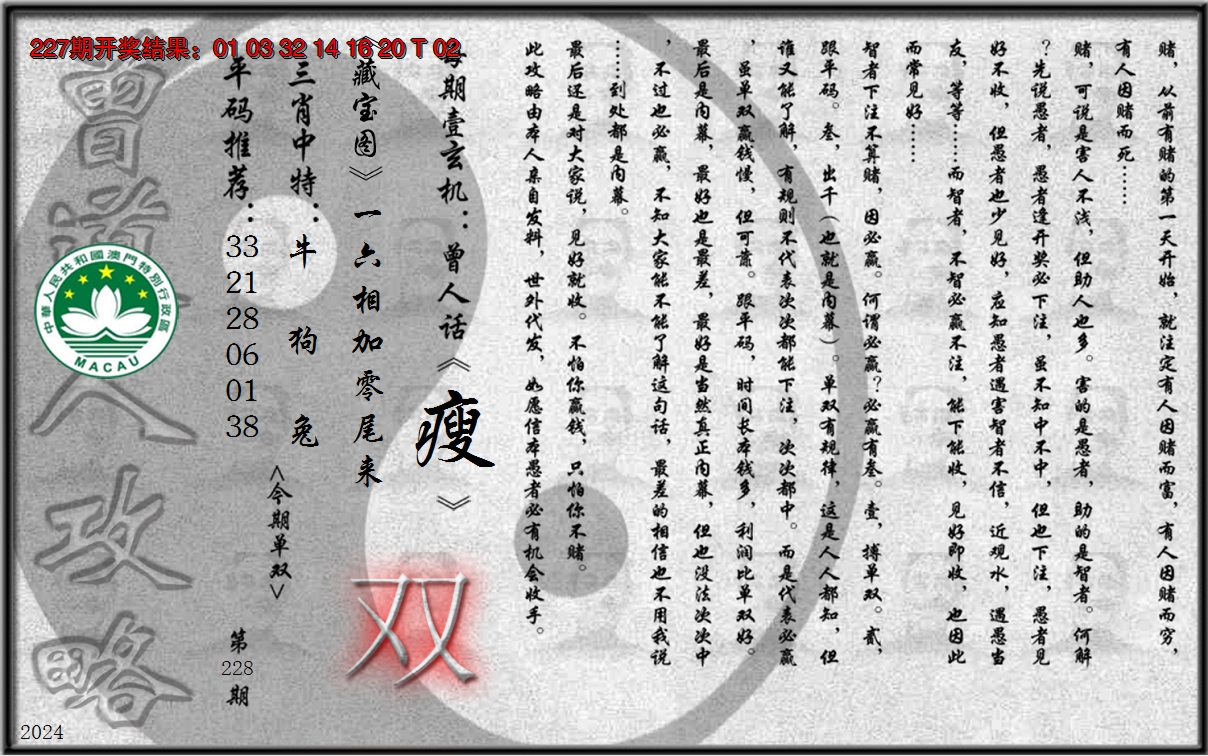 227期开奖结果：01 03 32 14 16 20 T 02
赌，从前有赌的第一天开始，就注定有人因赌而富，有人因赌而穷，
有人因赌而死……
赌，可说是害人不浅，但助人也多。害的是愚者，助的是智者。何解
？先说愚者，愚者逢开奖必下注，虽不知中不中，但也下注，愚者见
好不收，但愚者也少见好，应知愚者遇害智者不信，近观水，遇愚当
友，等等……而智者，不智必赢不注，能下能收，见好即收，也因此
而常见好……
智者下注不算赌，因必赢。何谓必赢？必赢有叁。壹，搏单双。贰，
跟平码。叁，出千（也就是内幕）。单双有规律，这是人人都知，但
谁又能了解，有规则不代表次次都能下注，次次都中。而是代表必赢
，虽单双赢钱慢，但可靠。跟平码，时间长本钱多，利润比单双好。
最后是内幕，最好也是最差，最好是当然真正内幕，但也没法次次中
，不过也必赢，不知大家能不能了解这句话，最差的相信也不用我说
……到处都是内幕。
最后还是对大家说，见好就收。不怕你赢钱，只怕你不赌。
此攻略由本人亲自发料，世外代发，如愿信本愚者必有机会收手。
每期壹玄机：曾人话《瘦》
《藏宝图》一六相加零尾来
双
三肖中特：牛 狗 兔
<今期单双>
平码推荐：33 21 28 06 01 38
第228期
曾道人攻略
中華人民共和國澳門特別行政區
MACAU
2024